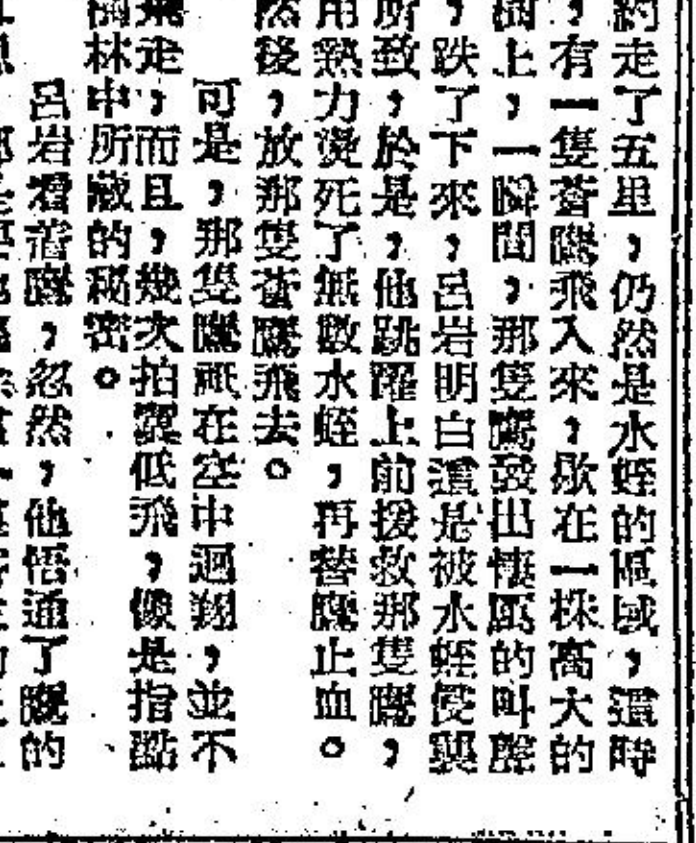 約走了五里，仍然是水蛭的區域，這時
，有一隻蒼鷹飛入來，歇在一株高大的
樹上，一瞬間，那隻鷹發出悽厲的叫聲
，跌了下來，呂岩明白這是被水蛭侵襲
所致，於是，他跳躍上前援救那隻鷹，
用熱力燙死了無數水蛭，再替鷹止血。
然後，放那隻蒼鷹飛去。
可是，那隻鷹祇在空中迴翔，並不
飛走，而且，幾次拍翼低飛，像是指點
林中所藏的秘密。
呂岩看着鷹，忽然，他悟通了鷹的